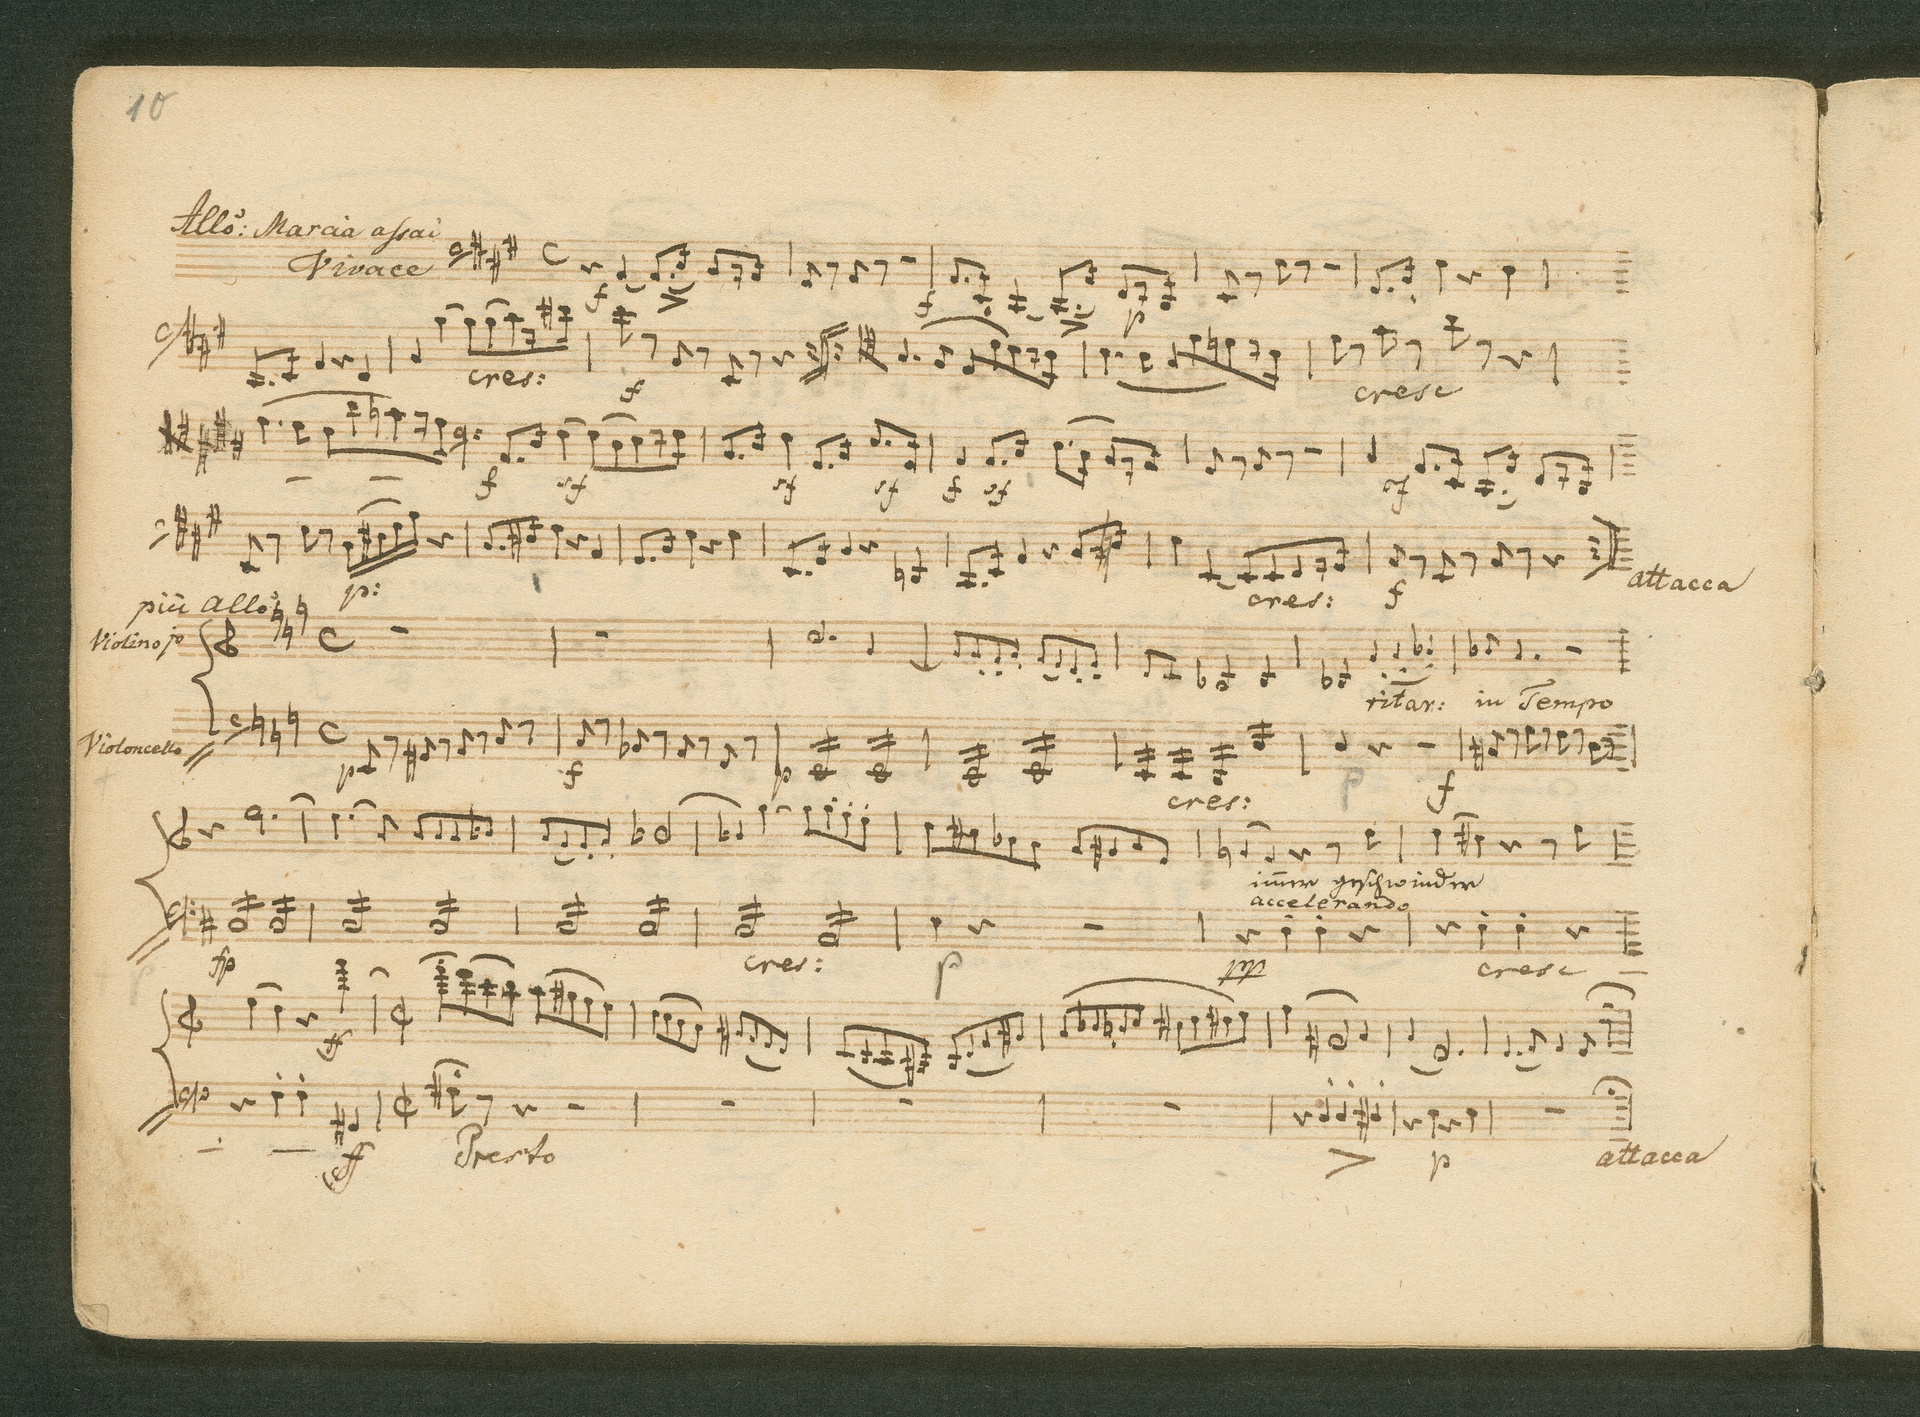 10
Allo: Marcia assai
Vivace
f
f
p
cres:
f
cresc
f
sf
sf
sf
f
sf
sf
p:
cres:
f
attacca
più Allo:
Violino jo
ritar: in Tempo
Violoncello
p
f
p
cres:
p
f
immer geschwinder
accelerando
fp
cres:
p
pp
cresc
ff
ff
Presto
p
attacca